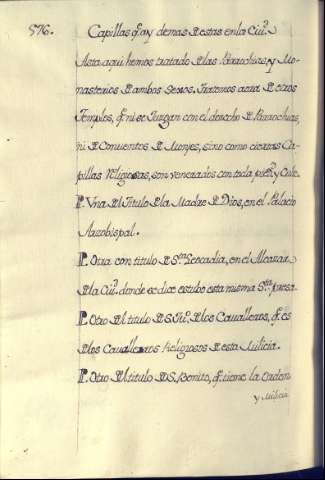 576. Capillas q̃ ay demas Destas en la Ciu.ᵈ
Asta aqui hemos tratado Delas Parrochias, y Mo-
nasterios De ambos Sexos. Tratemos aora De otros
Temples, q̃ ni se Juzgan con el derecho De Parrochias,
ni De Conventos De Monjes, sino como ciertas Ca-
pillas Religiosas, son venerados con toda
P. Vna Del Titulo Dela Madre De Dios, en el Palacio
Arzobispal.
P. Otra con titulo De S.ᵗᵃ Leocadia, en el Alcazar
Dela Ciu.ᵈ donde se dice estubo esta misma S.ᵗᵃ presa.
P. Otro Del titulo De S. Ju.º, Delos Cavalleros, q̃ es
Delos Cavalleros Religiosos De esta Milicia.
P. Otro Del titulo De S. Benito, q̃ tiene la Orden
y Milicia